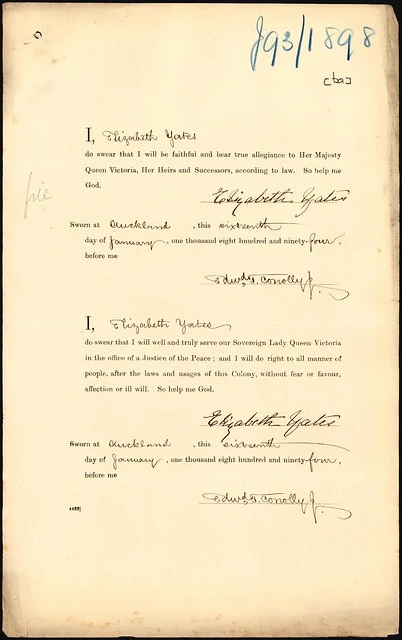 J93/1898
[ba]
I, Elizabeth Yates
do swear that I will be faithful and bear true allegiance to Her Majesty
Queen Victoria, Her Heirs and Successors, according to law. So help me
God.
Elizabeth Yates
Sworn at Auckland, this sixteenth
day of January, one thousand eight hundred and ninety-four,
before me
Edwd. T. Conolly J.
I, Elizabeth Yates
do swear that I will well and truly serve our Sovereign Lady Queen Victoria
in the office of a Justice of the Peace; and I will do right to all manner of
people, after the laws and usages of this Colony, without fear or favour,
affection or ill will. So help me God.
Elizabeth Yates
Sworn at Auckland, this sixteenth
day of January, one thousand eight hundred and ninety-four,
before me
Edwd. T. Conolly J.